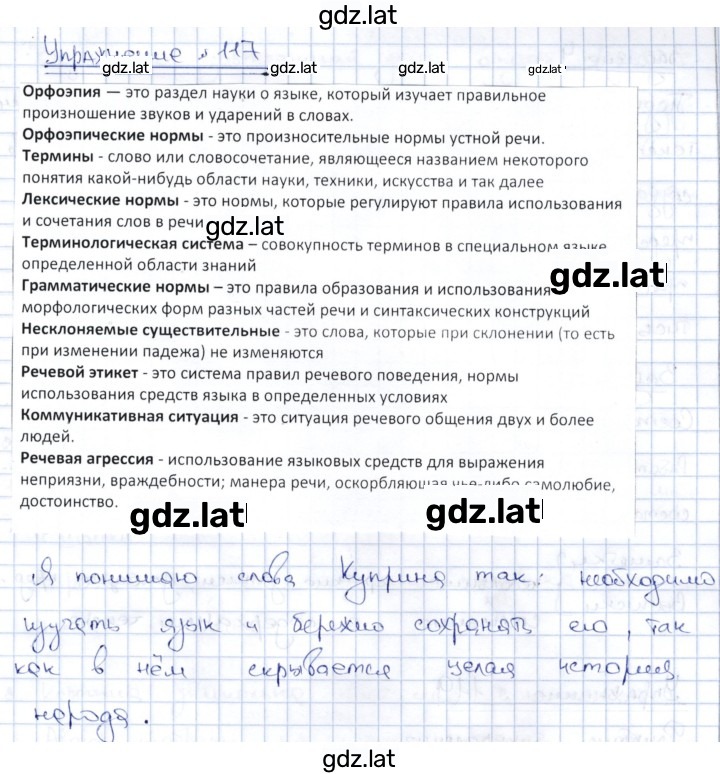 gdz.lat
Упражнение № 117
gdz.lat gdz.lat gdz.lat gdz.lat
Орфоэпия — это раздел науки о языке, который изучает правильное
произношение звуков и ударений в словах.
Орфоэпические нормы - это произносительные нормы устной речи.
Термины - слово или словосочетание, являющееся названием некоторого
понятия какой-нибудь области науки, техники, искусства и так далее
Лексические нормы - это нормы, которые регулируют правила использования
и сочетания слов в речи
gdz.lat
Терминологическая система – совокупность терминов в специальном языке
определенной области знаний
gdz.lat
Грамматические нормы – это правила образования и использования
морфологических форм разных частей речи и синтаксических конструкций
Несклоняемые существительные - это слова, которые при склонении (то есть
при изменении падежа) не изменяются
Речевой этикет - это система правил речевого поведения, нормы
использования средств языка в определенных условиях
Коммуникативная ситуация - это ситуация речевого общения двух и более
людей.
Речевая агрессия - использование языковых средств для выражения
неприязни, враждебности; манера речи, оскорбляющая чье-либо самолюбие,
достоинство.
gdz.lat gdz.lat
Я понимаю слова Куприна так: необходимо
изучать язык и бережно сохранять его, так
как в нём скрывается целая история
народа.
gdz.lat